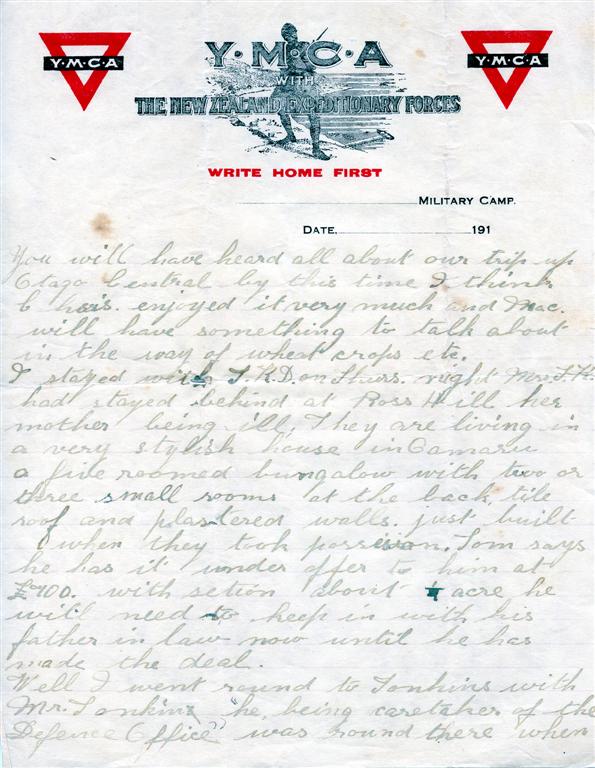 Y·M·C·A
Y·M·C·A
Y·M·C·A
WITH
THE NEW ZEALAND EXPEDITIONARY FORCES
WRITE HOME FIRST
MILITARY CAMP.
DATE, 191
You will have heard all about our trip up
Otago Central by this time I think
Chris. enjoyed it very much and Mac.
will have something to talk about
in the way of wheat crops etc.
I stayed with T.K.D. on Thurs. night Mrs T.K.
had stayed behind at Ross Hill her
mother being ill, They are living in
a very stylish house in Oamaru
a five roomed bungalow with two or
three small rooms at the back, tile
roof and plastered walls. just built
when they took possesion. Tom says
he has it under offer to him at
with setion about acre he
will need to keep in with his
father in law now until he has
made the deal.
Well I went round to Tonkins with
Mr. Tonkins he, being caretaker of the
Defence Office" was round there when